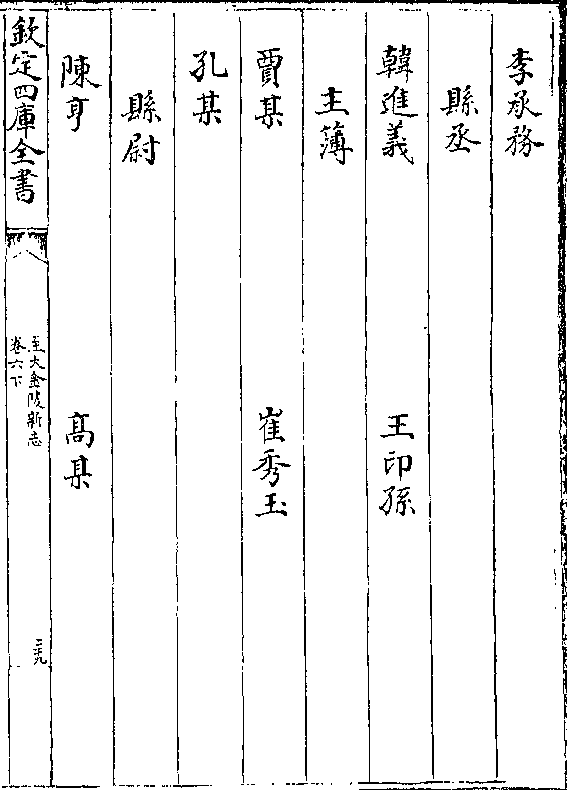 李承務
縣丞
韓進義　王印孫
主簿
賈某　崔秀玉
孔某
縣尉
陳亨　高某
欽定四庫全書
至大金陵新志
卷六下
三九